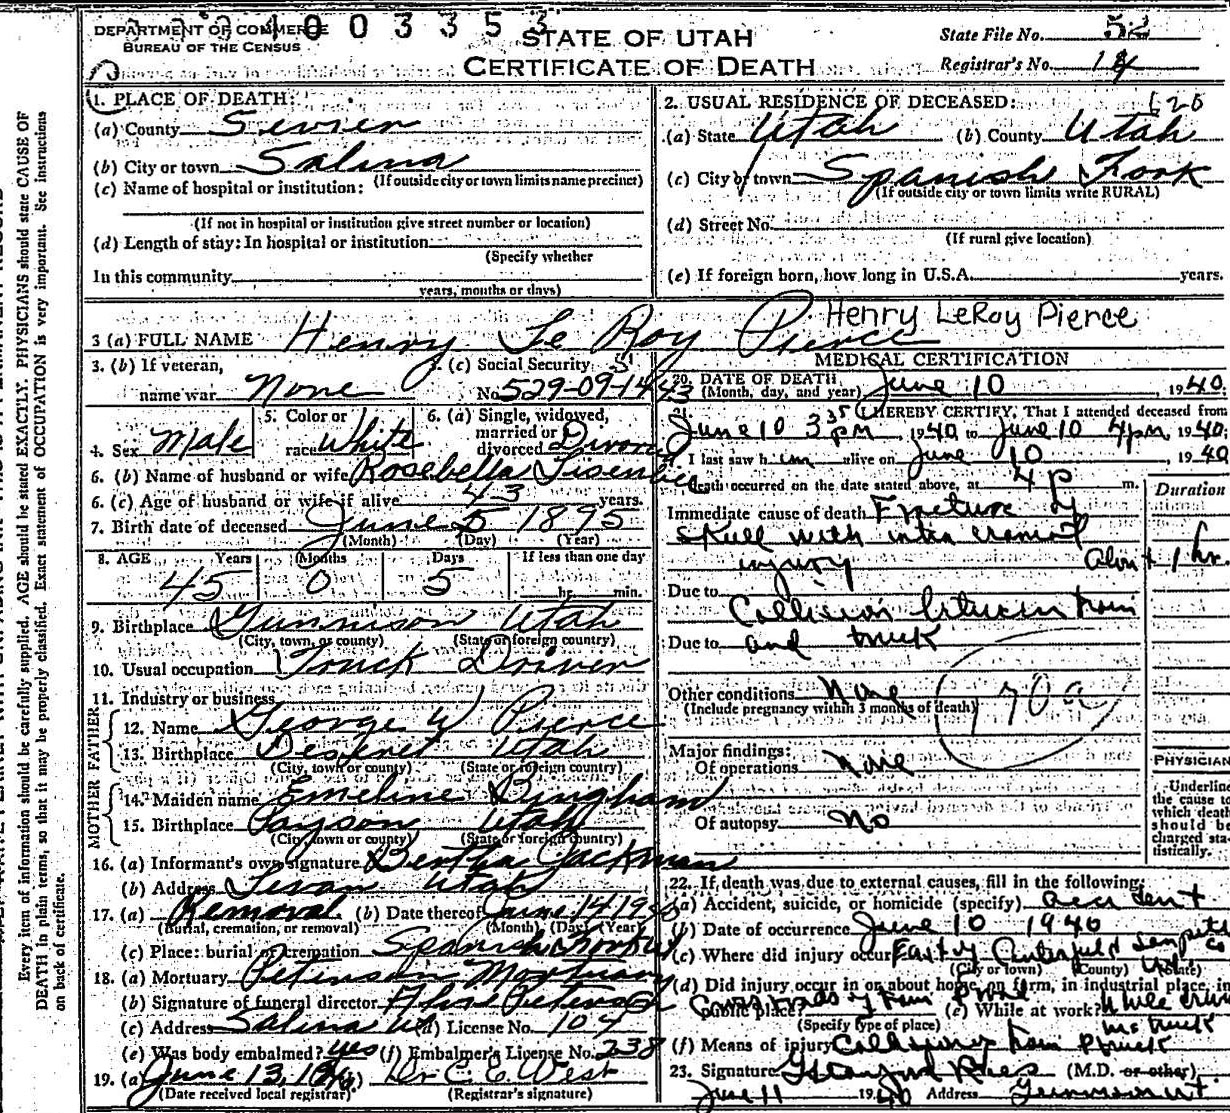 DEPARTMENT OF COMMERCE
BUREAU OF THE CENSUS
4 0 0 3 3 5 3
STATE OF UTAH
CERTIFICATE OF DEATH
State File No. 52
Registrar's No. 14
1. PLACE OF DEATH:
(a) County Sevier
(b) City or town Salina
(If outside city or town limits name precinct)
(c) Name of hospital or institution:
(If not in hospital or institution give street number or location)
(d) Length of stay: In hospital or institution
(Specify whether
In this community
years, months or days)
2. USUAL RESIDENCE OF DECEASED:
(a) State Utah (b) County Utah
(c) City or town Spanish Fork
(If outside city or town limits write RURAL)
(d) Street No.
(If rural give location)
(e) If foreign born, how long in U.S.A. years.
3 (a) FULL NAME Henry Le Roy Pierce
Henry LeRoy Pierce
3. (b) If veteran,
name war None
3. (c) Social Security
No. 529-09-1443
4. Sex Male
5. Color or
race White
6. (a) Single, widowed,
married or
divorced Divorced
6. (b) Name of husband or wife Rosebella
6. (c) Age of husband or wife if alive 43 years.
7. Birth date of deceased June 5 1895
(Month) (Day) (Year)
8. AGE Years Months Days If less than one day
45 0 5 hr. min.
9. Birthplace Gunnison Utah
(City, town, or county) (State or foreign country)
10. Usual occupation Truck Driver
11. Industry or business
FATHER
12. Name George W Pierce
13. Birthplace Deseret Utah
(City, town or county) (State or foreign country)
MOTHER
14. Maiden name Emeline Bingham
15. Birthplace Payson Utah
(City, town or county) (State or foreign country)
16. (a) Informant's own signature Bertha Jackman
(b) Address Levan Utah
17. (a) Removal (b) Date thereof June 14 1940
(Burial, cremation, or removal) (Month) (Day) (Year)
(c) Place: burial or cremation Spanish Fork
18. (a) Mortuary Petersen Mortuary
(b) Signature of funeral director
(c) Address Salina (d) License No. 107
(e) Was body embalmed? yes (f) Embalmer's License No. 238
19. (a) June 13, 1940 (b) Dr C. E. West
(Date received local registrar) (Registrar's signature)
MEDICAL CERTIFICATION
20. DATE OF DEATH
(Month, day, and year) June 10, 1940
21. I HEREBY CERTIFY, That I attended deceased from
June 10 3 35 pm, 1940 to June 10 4 pm, 1940.
I last saw him alive on June 10 1940
Death occurred on the date stated above, at 4 p m.
Duration
Immediate cause of death Fracture of
skull with intra cranial
injury About 1 hr.
Due to
Collision between train
Due to and truck
Other conditions None
(Include pregnancy within 3 months of death)
170a
Major findings:
Of operations None
Of autopsy No
PHYSICIAN
Underline
the cause to
which death
should be
charged sta-
tistically.
22. If death was due to external causes, fill in the following:
(a) Accident, suicide, or homicide (specify) accident
(b) Date of occurrence June 10 1940
(c) Where did injury occur East of Centerfield Sanpete Co
(City or town) (County) (State)
(d) Did injury occur in or about home, on farm, in industrial place, in
public place?
(Specify type of place)
(e) While at work? While driving
truck
(f) Means of injury Collision train truck
23. Signature (M.D. or other)
June 11 1940 Address Gunnison Ut.
Every item of information should be carefully supplied. AGE should be stated EXACTLY. PHYSICIANS should state CAUSE OF
DEATH in plain terms, so that it may be properly classified. Exact statement of OCCUPATION is very important. See instructions
on back of certificate.